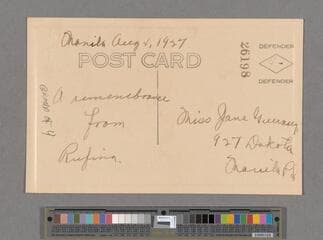 Manila Aug 4, 1927
POST CARD
26198
DEFENDER
DEFENDER
A remembrance
from
Rufina
Miss Jane
927 Dakota
Manila P.I.